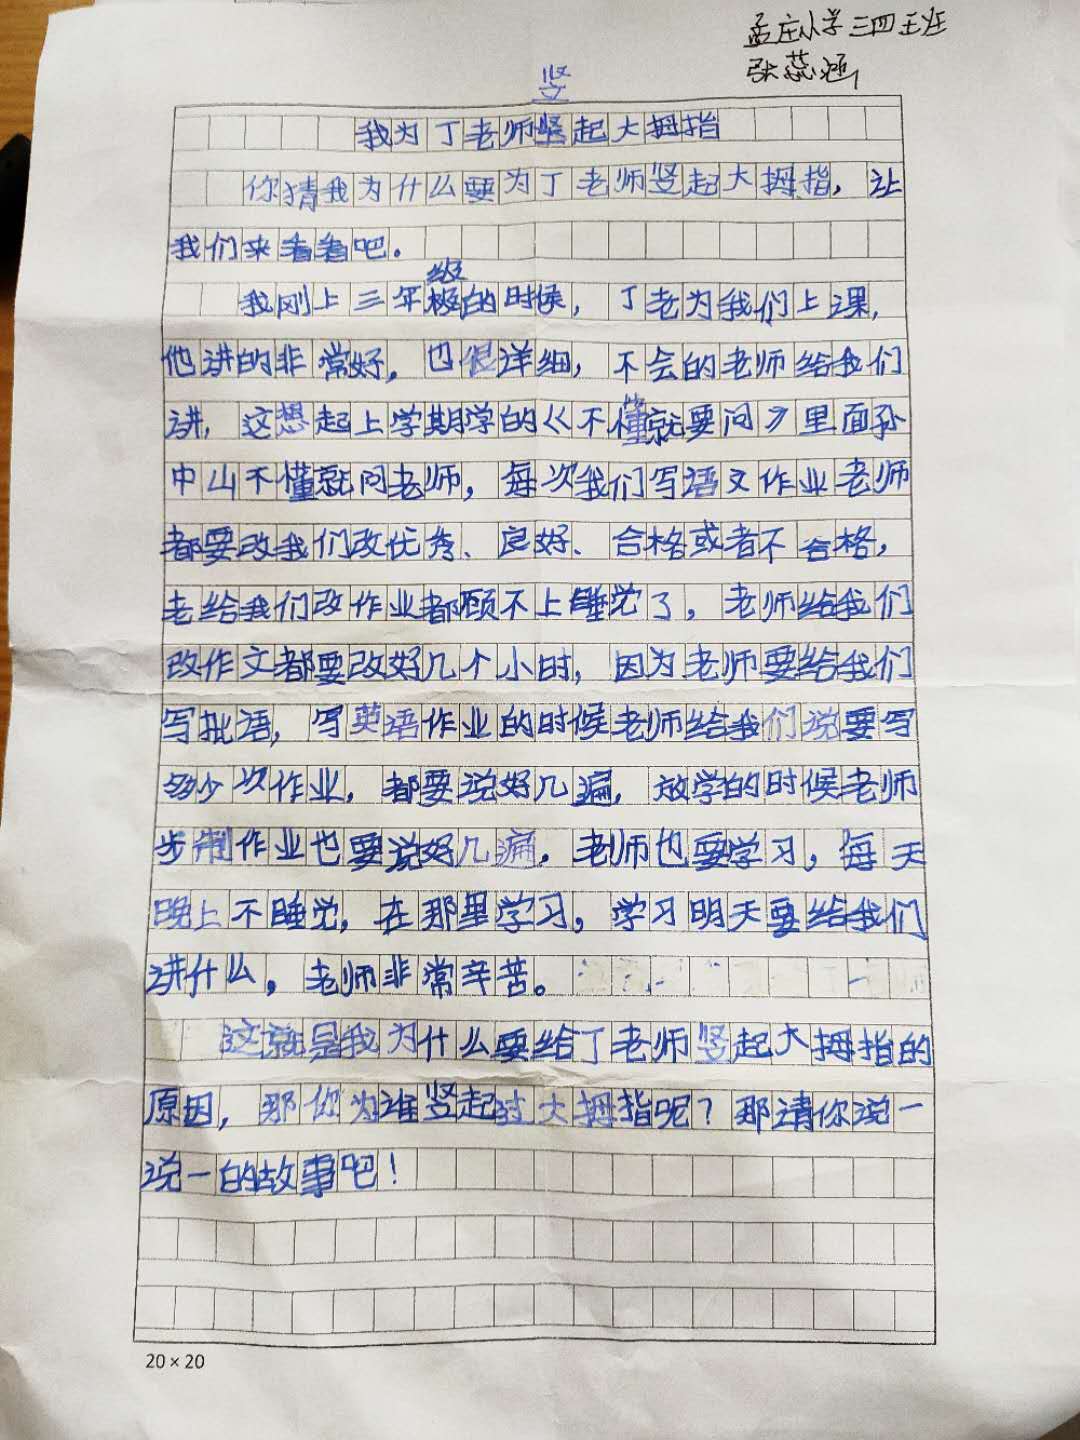 孟庄小学三四班
张蕊涵
竖
我为丁老师竖起大拇指
你猜我为什么要为丁老师竖起大拇指，让
我们来看看吧。
级
我刚上三年极的时候，丁老为我们上课，
他讲的非常好，也很详细，不会的老师给我们
讲，这想起上学期学的《不懂就要问》里面孙
中山不懂就问老师，每次我们写语文作业老师
都要改我们改优秀、良好、合格或者不合格，
老给我们改作业都顾不上睡觉了，老师给我们
改作文都要改好几个小时，因为老师要给我们
写批语，写英语作业的时候老师给我们说要写
多少次作业，都要说好几遍，放学的时候老师
步制作业也要说好几遍，老师也要学习，每天
晚上不睡觉，在那里学习，学习明天要给我们
讲什么，老师非常辛苦。
这就是我为什么要给丁老师竖起大拇指的
原因，那你为谁竖起过大拇指呢？那请你说一
说一的故事吧！
20×20